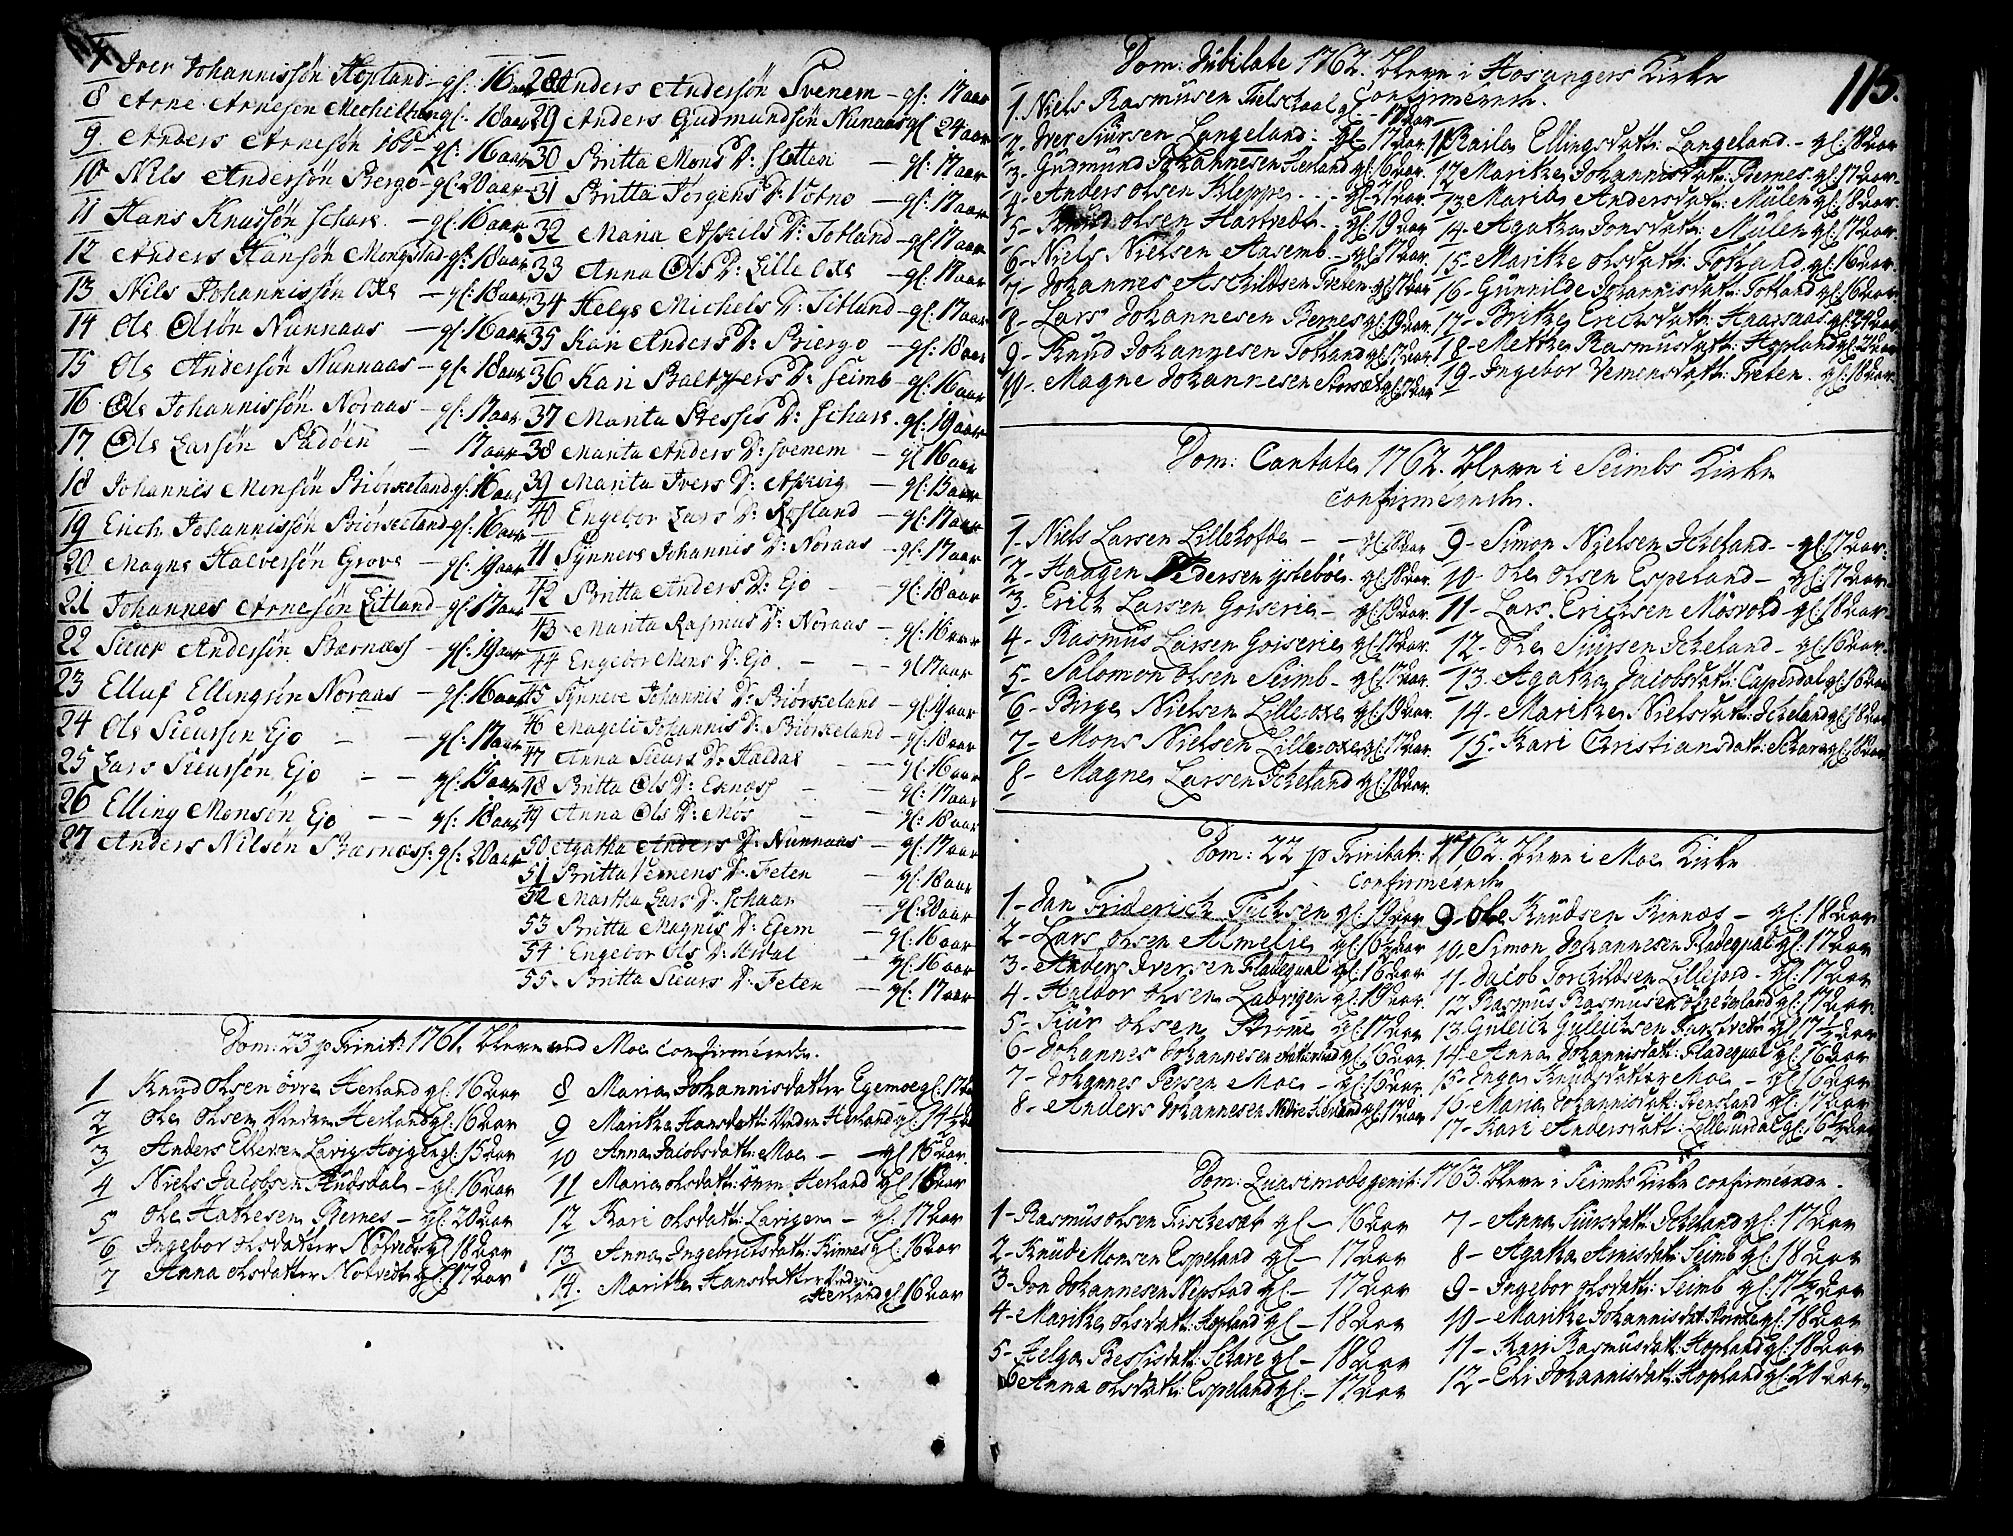 7 Iver Johannissøn Hopland - gl: 16 aar
8 Arne Arnesøn gl: 18 aar
9 Anders Arnesøn gl: 16 aar
10 Nils Andersøn Berge - gl: 20 aar
11 Hans Knutsøn Schare - gl: 16 aar
12 Anders Hansøn Mongstad gl: 18 aar
13 Nils Johannissøn Oxe - gl: 18 aar
14 Ole Olsøn Nunnaas - gl: 16 aar
15 Ole Andersøn Nunnaas - gl: 18 aar
16 Ole Johannissøn Noraas - gl: 17 aar
17 Ole Larsøn - 17 aar
18 Johannis Monsøn Biørkeland gl: 16 aar
19 Erich Johannissøn Biørkeland gl: 16 aar
20 Magne Halversøn Grove - gl: 19 aar
21 Johannes Arnesøn Eitland gl: 17 aar
22 Siur Andersøn Barnæss - gl: 19 aar
23 Elluf Ellingsøn Noraas - gl: 16 aar
24 Ole Siursson Ejo - - gl: 17 aar
25 Lars Siursson Ejo - - gl: 15 aar
26 Elling Monsøn Ejo - - gl: 18 aar
27 Anders Nilsøn Barnæss: gl: 20 aar
28 Anders Andersøn Svenem - gl: 17 aar
29 Anders Gudmundsøn Nunaas gl 24 aar
30 Britta Mons D: Sletten - gl: 17 aar
31 Britta Jørgens D: Votno - gl: 17 aar
32 Maria Askils D: Totland - gl 17 aar
33 Anna Ols D: Lille Oxe - gl: 17 aar
34 Helge Michels D: Titland - gl: 17 aar
35 Kari Anders D: Bierge - gl: 18 aar
36 Kari Baltzers D: Seimb - gl: 16 aar
37 Marita Besses D: Schare. gl: 19 aar
38 Marita Anders D: Svenem - gl 16 aar
39 Marita Ivers D: Askvig - gl: 15 aar
40 Engebor Lars D: Rosland - gl: 17 aar
41 Synneve Johannis D: Noraas - gl: 17 aar
42 Britta Anders D: Ejo - gl: 18 aar
43 Marita Rasmus D: Noraas - gl: 16 aar
44 Engebor Mons D: Ejo - - gl 17 aar
45 Synneve Johannis D: Biørkeland - gl: 19 aar
46 Mageli Johannis D: Biørkeland - gl: 18 aar
47 Anna Siurs D: Haldal - - gl: 16 aar
48 Britta Ols D: Eknæss - - gl: 17 aar
49 Anna Ols D: Mos - - gl: 18 aar
50 Agatha Anders D: Nunnaas - gl: 17 aar
51 Britta Vemens D: Feten - gl: 18 aar
52 Martha Lars D: Schaar - gl: 20 aar
53 Britta Magnis D: Ejem - gl: 16 aar
54 Engebor Ols D: Urdal - gl: 16 aar
55 Britta Siurs D: Feten - gl: 17 aar
Dom: 23 p Trinit: 1761. bleve ved Moe Confirmeerede.
1 Knud Olsen øvre Herland gl: 16 aar
2 Ole Olsen Nedre Herland gl: 16 aar
3 Anders gl: 15 aar
4 Niels Jacobsen Hundsdal - gl: 16 aar
5 Ole Bernes - gl: 20 aar
6 Ingebor Olsdatter Nøtvedt gl 18 aar
7 Anna Olsdatter Nøtvedt gl: 17 aar
8 Maria Johannisdatter Egemoe gl: 17
9 Maritha Hansdatt: Nedre Herland gl: 14½
10 Anna Jacobsdatt: Moe - - gl 15 aar.
11 Maria Olsdatt: øvre Herland gl 16 aar
12 Kari Olsdatt: Larigen - gl: 17 aar
13 Anna Ingebrictsdatt: Kinnes gl: 16 aar
14. Maritha Hansdatter Nedre
Herland gl 16 aar
115.
Dom: Jubilate 1762. bleve i Hosangers Kirke
Confirmeerede.
1. Niels Rasmusen gl - 18 aar
2. Iver Siursen Langeland: gl 17 aar.
3. Gudmund Johannesen Herland gl 16 aar.
4 - Anders Olsen Kleppe - gl 21 aar.
5 - Knud Olsen Hartvedt - gl: 19 aar
6 - Niels Nielsen Aasemb. - gl: 17 aar.
7 - Johannes Aschildsen Feten - gl 17 aar
8 - Lars Johannesen Bernes gl: 19 aar.
9 - Knud Johannesen Totland gl 17 aar
10 - Magne Johannesen gl 17 aar
11 Raila Ellingsdatt: Langeland. - gl: 18 aar
12 Maritha Johannisdatt: Bernes gl: 17 aar
13 Maria Andersdatt: Mülen gl: 18 aar.
14 - Agatha Jonsdatt: Mülen gl: 17 aar.
15 - Maritha Olsdatt: Totland. gl: 16 aar.
16 - Gunnilde Johannisdatt: Totland gl: 16 aar.
17 - Britha Erichsdatt: Haarsaas gl: 24 aar
18 - Metha Rasmusdatt: Hopland gl: 22 aar
19 - Ingebor Vemensdatt: Feten. gl: 18 aar.
Dom: Cantate 1762. bleve i Seimbs Kirke
Confirmeerede.
1. Niels Larsen Lillehofde - - gl: 18 aar
2 - Haagen Pedersen ystebøe. gl 18 aar.
3. Erich Larsen Goiserie - gl: 19 aar.
4 - Rasmus Larsen Goiserie gl 17 aar
5 - Salomon Olsen Seimb - gl: 17 aar.
6 - Birge Nielsen Lille oxe gl: 19 aar.
7 - Mons Nielsen Lille oxe gl: 17 aar.
8 - Magne Larsen Icheland gl: 18 aar.
9 - Simon Nielsen Icheland - - gl 17 aar.
10 - Ole Olsen Espeland - gl: 17 aar.
11 - Lars Erichsen Mosvold gl: 18 aar.
12 - Ole Siursen Icheland - gl 16 aar.
13. Agatha Jacobsdatt: Casperdal gl: 16 aar
14 - Maritha Nielsdatt: Icheland gl: 18 aar
15 - Kari Christiansdatt: Schare gl: 18 aar.
Dom: 22 p Trinitat: 1762. bleve i Moe Kirke
Confirmeerede
1 - Dan Friderich gl: 19 aar
2 - Lars Olsen Almelie gl: 16½ aar
3 - Anders Iversen Fladequal gl: 16 aar
4 - Haldor Olsen Laurigen gl: 19 aar.
5 - Siur Olsen Strøme gl: 17 aar
6 - Johannes Johannesen gl: 16 aar.
7 - Johannes Persen Moe - gl: 16 aar.
8 - Anders Johannesen Nedre Herland gl: 17 aar
9 - Ole Knudsen Kinnes - gl: 18 aar
10. Simon Johannesen Fladequal gl: 17 aar
11 - Jacob Torchildsen Lillejord - gl: 17 aar
12 Rasmus Rasmusen gl: 17 aar
13. Guleich Guleichsen Hartvedt gl 17½ aar
14 - Anna Johannisdatt: Fladequal gl: 16 aar
15 - Inger Knudsdatter Moe - gl: 16 aar
16 - Maria Johannisdatt: Stensland gl: 17 aar
17 - Kari Andersdatt: Lilleurdal gl: 16½ aar
Dom: Quasimodogenit: 1763. bleve i Seimbs Kirke confirmeerede.
1 - Rasmus Olsen Fischesæt gl - 16 aar
2 - Knud Monsen Espeland gl - 17 aar
3 - Jon Johannesen Nepstad gl - 17 aar
4 - Maritha Olsdatt: Hopland gl - 18 aar
5 - Helga Bessisdatt: Schare gl - 18 aar
6 Anna Olsdatt: Espeland gl - 17 aar
7 - Anna Siursdatt: Icheland gl: 17 aar
8 - Agatha Arnisdatt: Seimb gl: 18 aar
9 - Ingebor Olsdatt: Seimb gl: 17½ aar
10 - Maritha Johannisdat: gl: 18 aar
11 - Kari Rasmusdatt: Hopland gl: 18 aar
12 - Eli Johannisdatt: Hopland gl: 21 aar